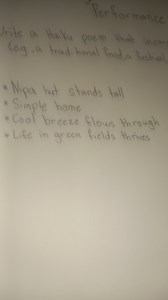 Performance
a Haiku poem that
a traditional food, a festival,
* Nipa hut stands tall
* Simple home
* Cool breeze flows through
* Life in green fields thrives